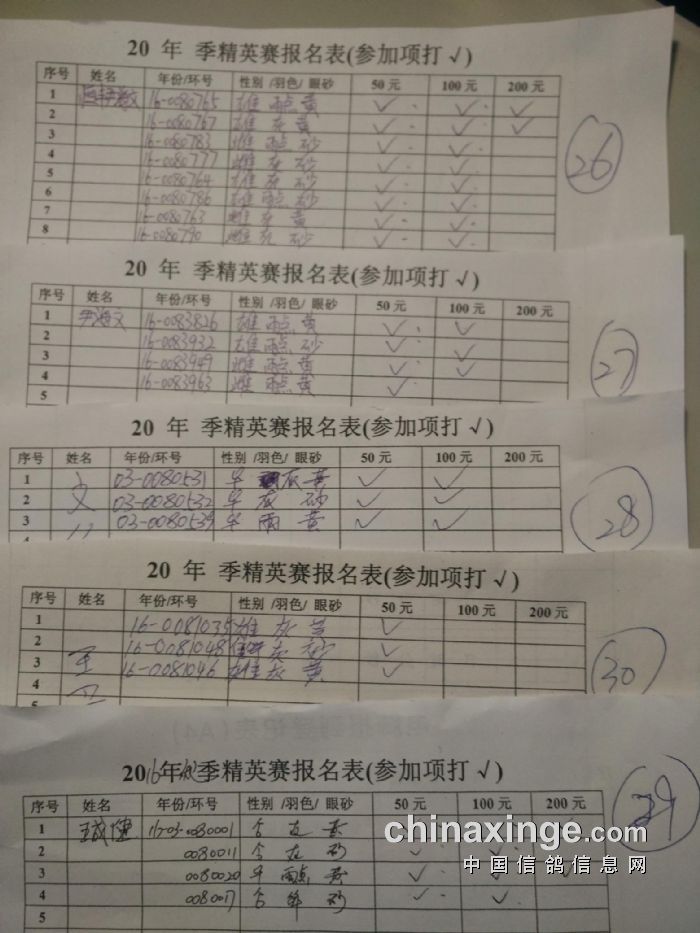 20 年 季精英赛报名表(参加项打 √)
序号 姓名 年份/环号 性别 /羽色/ 眼砂 50 元 100 元 200 元
1 16-0080765 雄 雨点 黄 ✓ ✓ ✓
2 16-0080767 雄 灰 黄 ✓ ✓ ✓
3 16-0080783 雌 雨点 砂 ✓ ✓
4 16-0080777 雌 灰 砂 ✓ ✓
5 16-0080764 雄 灰 砂 ✓ ✓
6 16-0080786 雄 雨点 砂 ✓ ✓
7 16-0080763 雌 灰 黄 ✓ ✓
8 16-0080790 雌 灰 砂 ✓ ✓
26
20 年 季精英赛报名表(参加项打 √)
序号 姓名 年份/环号 性别 /羽色/ 眼砂 50 元 100 元 200 元
1 尹海文 16-0083826 雄 雨点 黄 ✓ ✓
2 16-0083932 雄 雨点 砂 ✓
3 16-0083949 雌 雨点 黄 ✓ ✓
4 16-0083963 雌 雨点 黄 ✓
5
27
20 年 季精英赛报名表(参加项打 √)
序号 姓名 年份/环号 性别 /羽色/ 眼砂 50 元 100 元 200 元
1 03-0080531 灰 黄 ✓ ✓
2 03-0080532 灰 砂 ✓ ✓
3 03-0080539 雨 黄 ✓ ✓
28
20 年 季精英赛报名表(参加项打 √)
序号 姓名 年份/环号 性别 /羽色/ 眼砂 50 元 100 元 200 元
1 16-0081035 雄 灰 黄 ✓
2 16-0081048 灰 砂 ✓
3 王 16-0081046 雄 灰 黄 ✓
4
5
30
2016年秋季精英赛报名表(参加项打 √)
序号 姓名 年份/环号 性别 /羽色/ 眼砂 50 元 100 元 200 元
1 16-03-0080001 黄
2 0080011 砂 ✓ ✓
3 0080020 雨点 黄 ✓ ✓ ✓
4 0080017 砂 ✓ ✓
5
29
chinaxinge.com
中国信鸽信息网